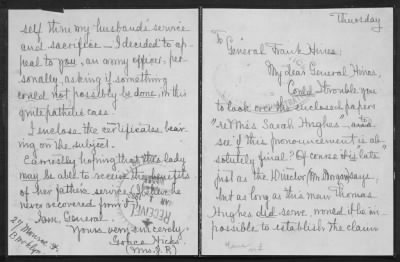 Thursday
To
General Frank Hines,
My dear General Hines,
Could I trouble you
to look over the enclosed papers
"re Miss Sarah Hughes" and
see if this pronouncement is ab-
solutely final? Of course it is late
just as the Director, Mr. Morgan says,
but as long as this man Thomas
Hughes did serve, would it be im-
possible to establish the claim
self thru my husband's service
and sacrifice - I decided to ap-
peal to you, an army officer, per-
sonally, asking if something
could not possibly be done, in this
quite pathetic case.
I enclose the certificates bear-
ing on the subject.
Earnestly hoping that this lady
may be able to receive the benefits
of her father's service, he
never recovered from it
Dear General.
Yours very sincerely,
Grace Hicks.
(Mrs. J. R)
27 Monroe St
Brooklyn
RECEIVED